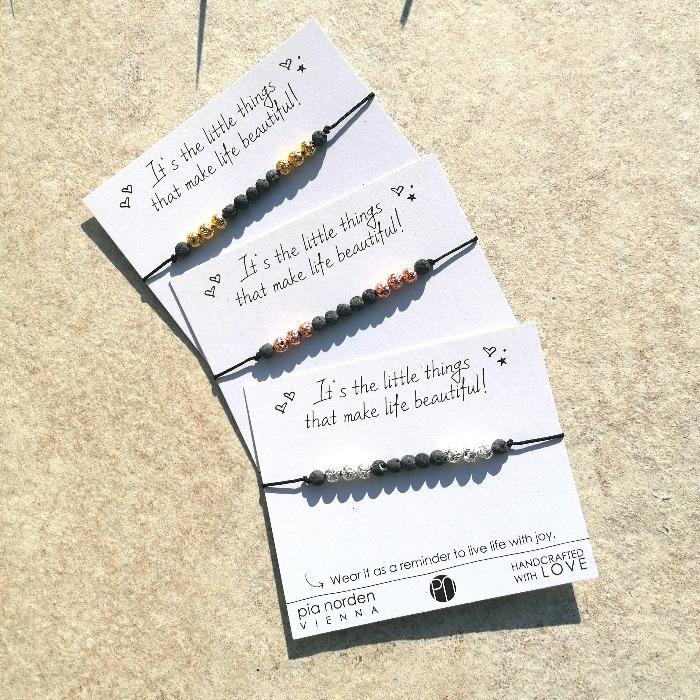 It's the little things
that make life beautiful!
It's the little things
that make life beautiful!
It's the little things
that make life beautiful!
Wear it as a reminder to live life with joy.
pia norden
VIENNA
PN
HANDCRAFTED
WITH LOVE